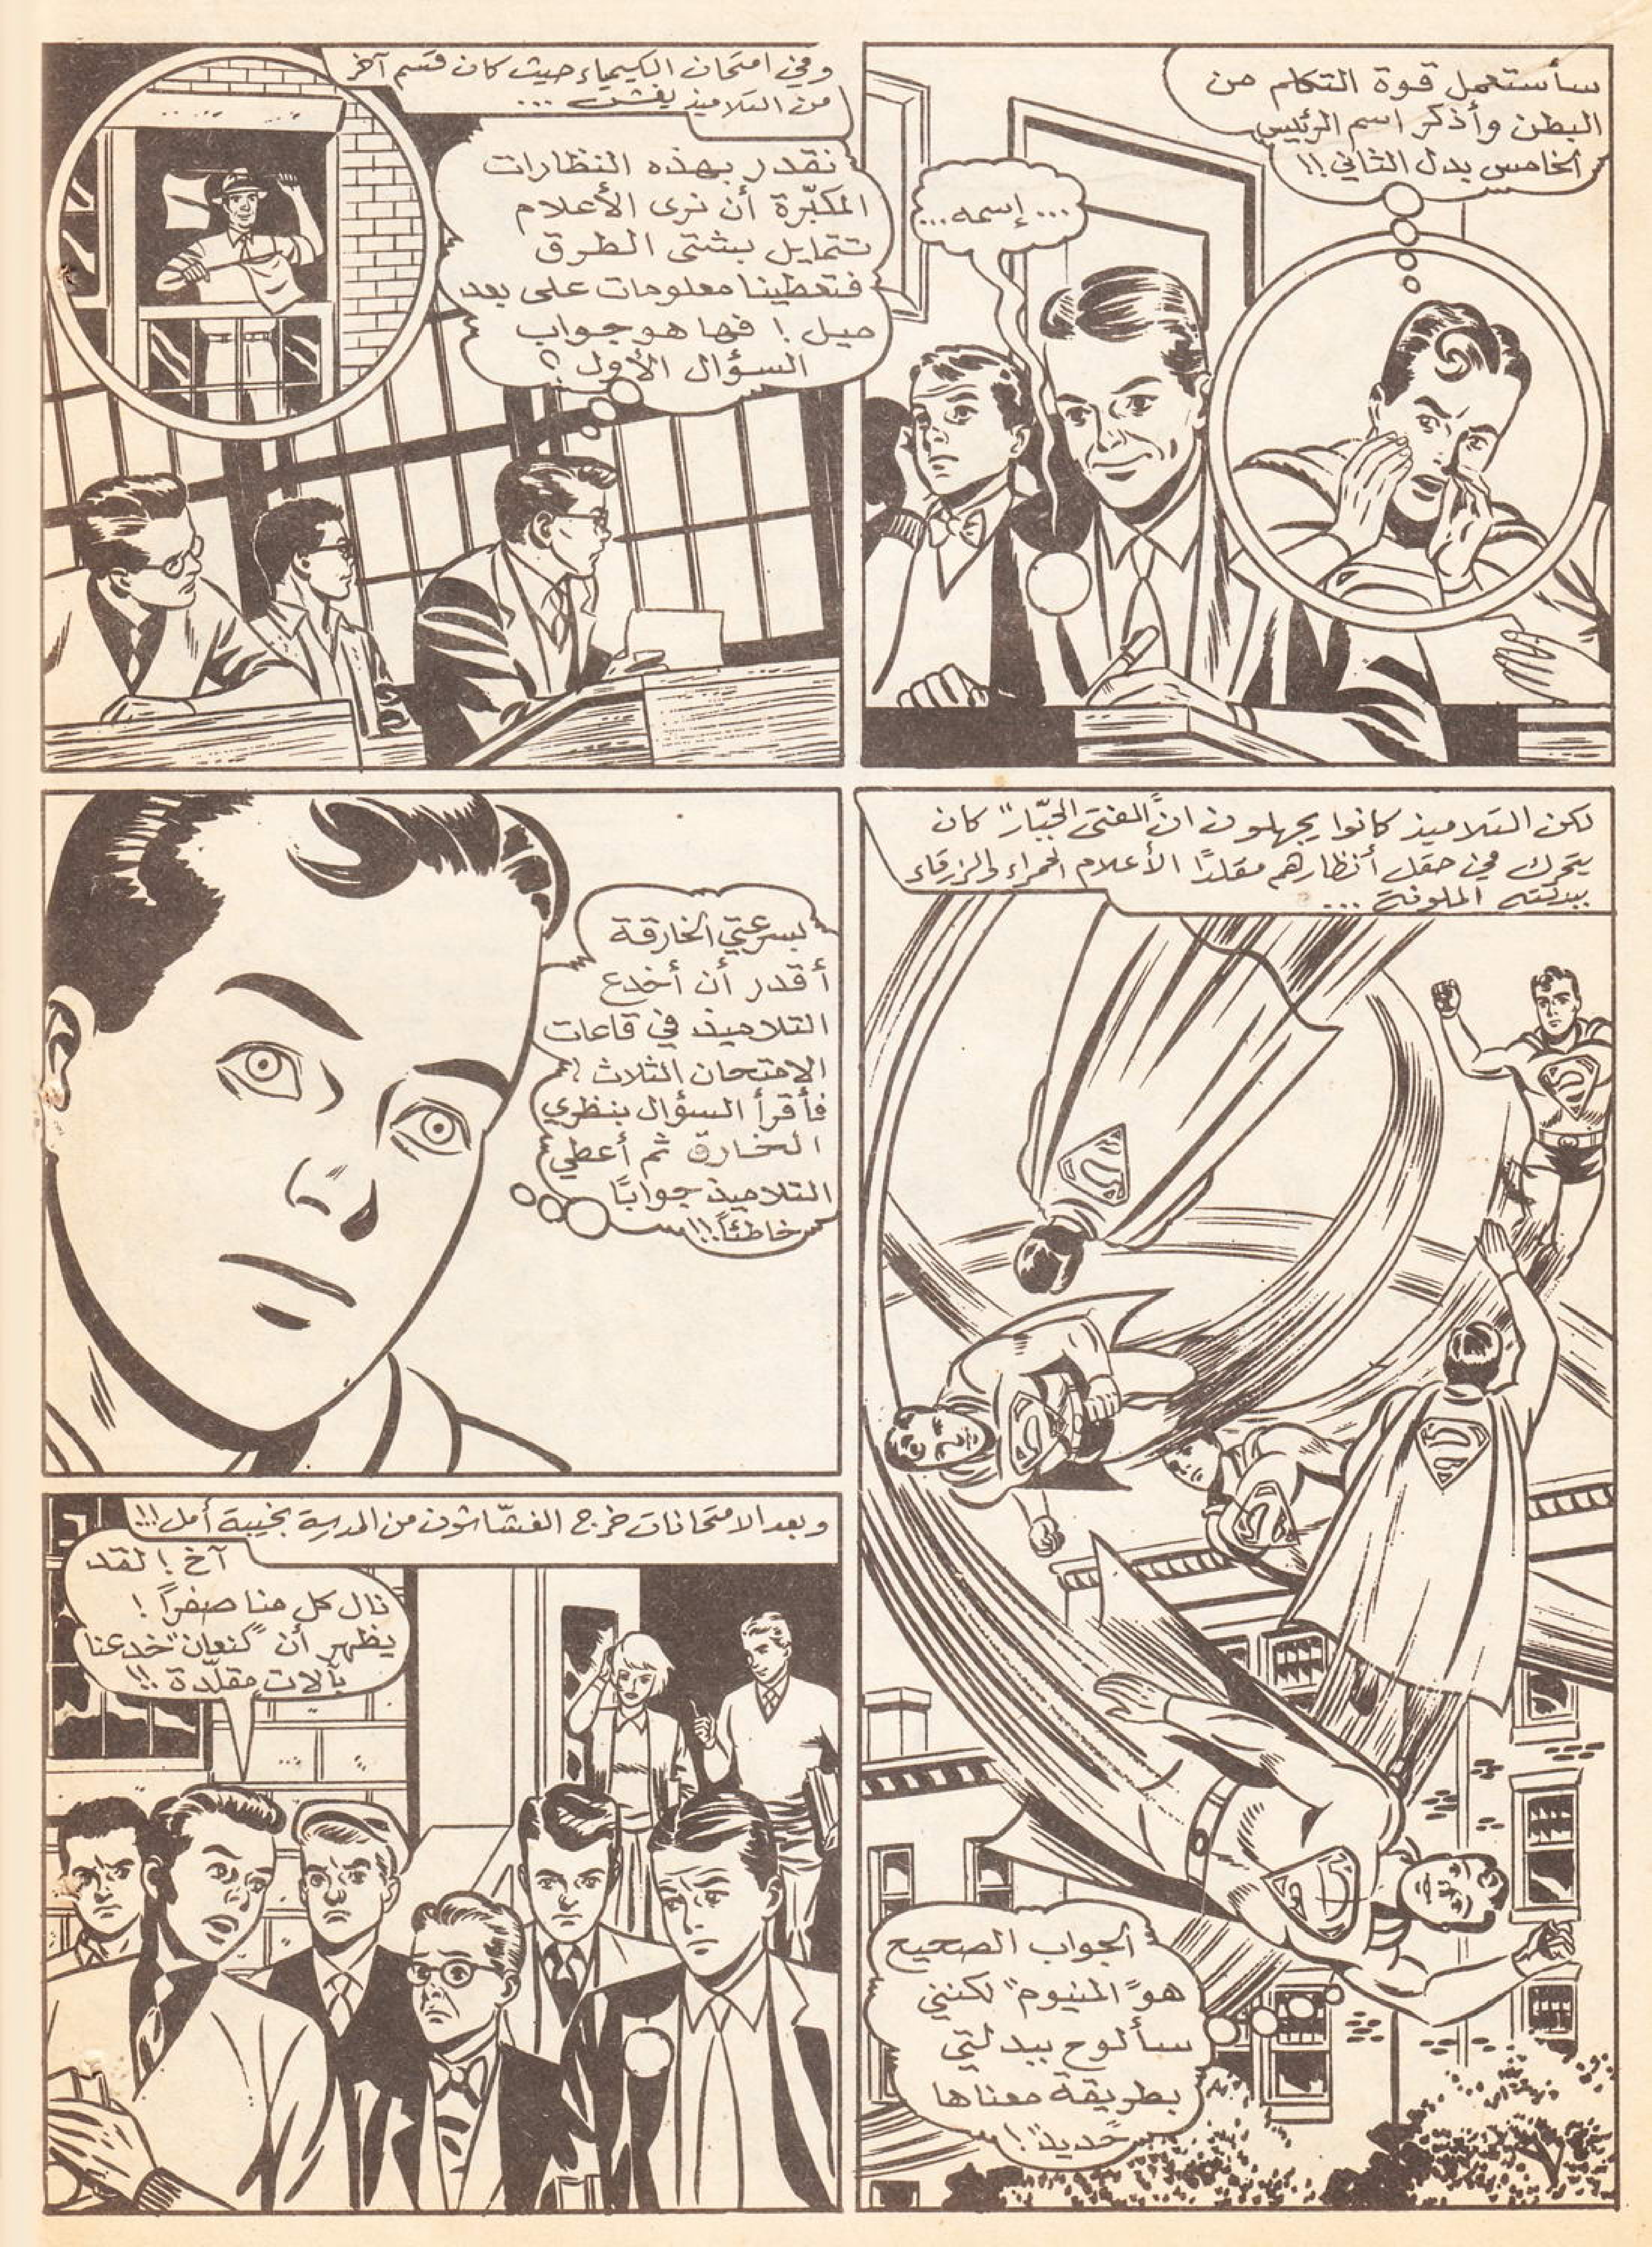 سأستعمل قوة التكلم من
البطن وأذكر اسم الرئيس
الخامس بدل الثاني !!
... إسمه ...
وفي امتحان الكيمياء حيث كان قسم آخر
من التلاميذ يغش ...
نقدر بهذه النظارات
المكبّرة أن نرى الأعلام
تتمايل بشتى الطرق
فتعطينا معلومات على بعد
ميل ! فها هو جواب
السؤال الأول ؟
لكن التلاميذ كانوا يجهلون انّ "الفتى الجبّار" كان
يتحرك في حقل أنظارهم مقلدًا الأعلام الحمراء والزرقاء
ببدلته الملونة ...
الجواب الصحيح
هو "المنيوم" لكنني
سألوح ببدلتي
بطريقة معناها
"حديد" !
بسرعتي الخارقة
أقدر أن أخدع
التلاميذ في قاعات
الامتحان الثلاث !
فأقرأ السؤال بنظري
الخارق ثم أعطي
التلاميذ جوابًا
خاطئًا !!
وبعد الامتحانات خرج الغشّاشون من المدرسة بخيبة أمل !!!
آخ ! لقد
نال كل منا صفرًا !
يظهر أن "كنعان" خدعنا
بآلات مقلّدة !!